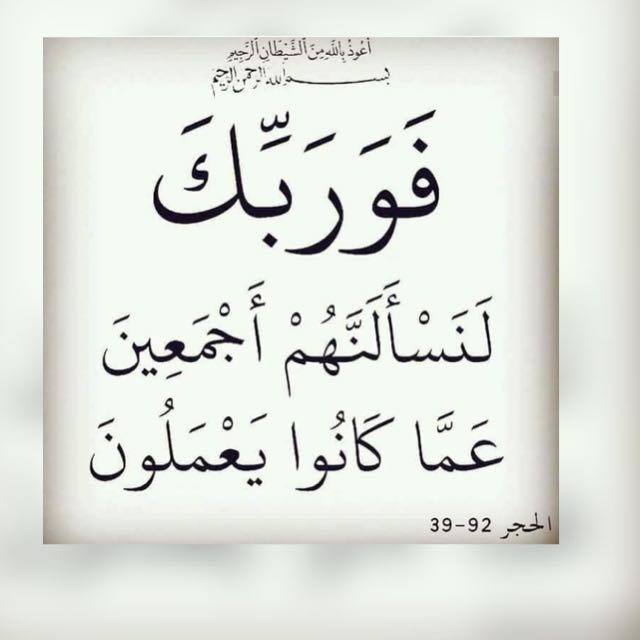 أعوذ بالله من الشيطان الرجيم
بسم الله الرحمن الرحيم
فَوَرَبِّكَ
لَنَسْأَلَنَّهُمْ أَجْمَعِينَ
عَمَّا كَانُوا يَعْمَلُونَ
الحجر 92-39